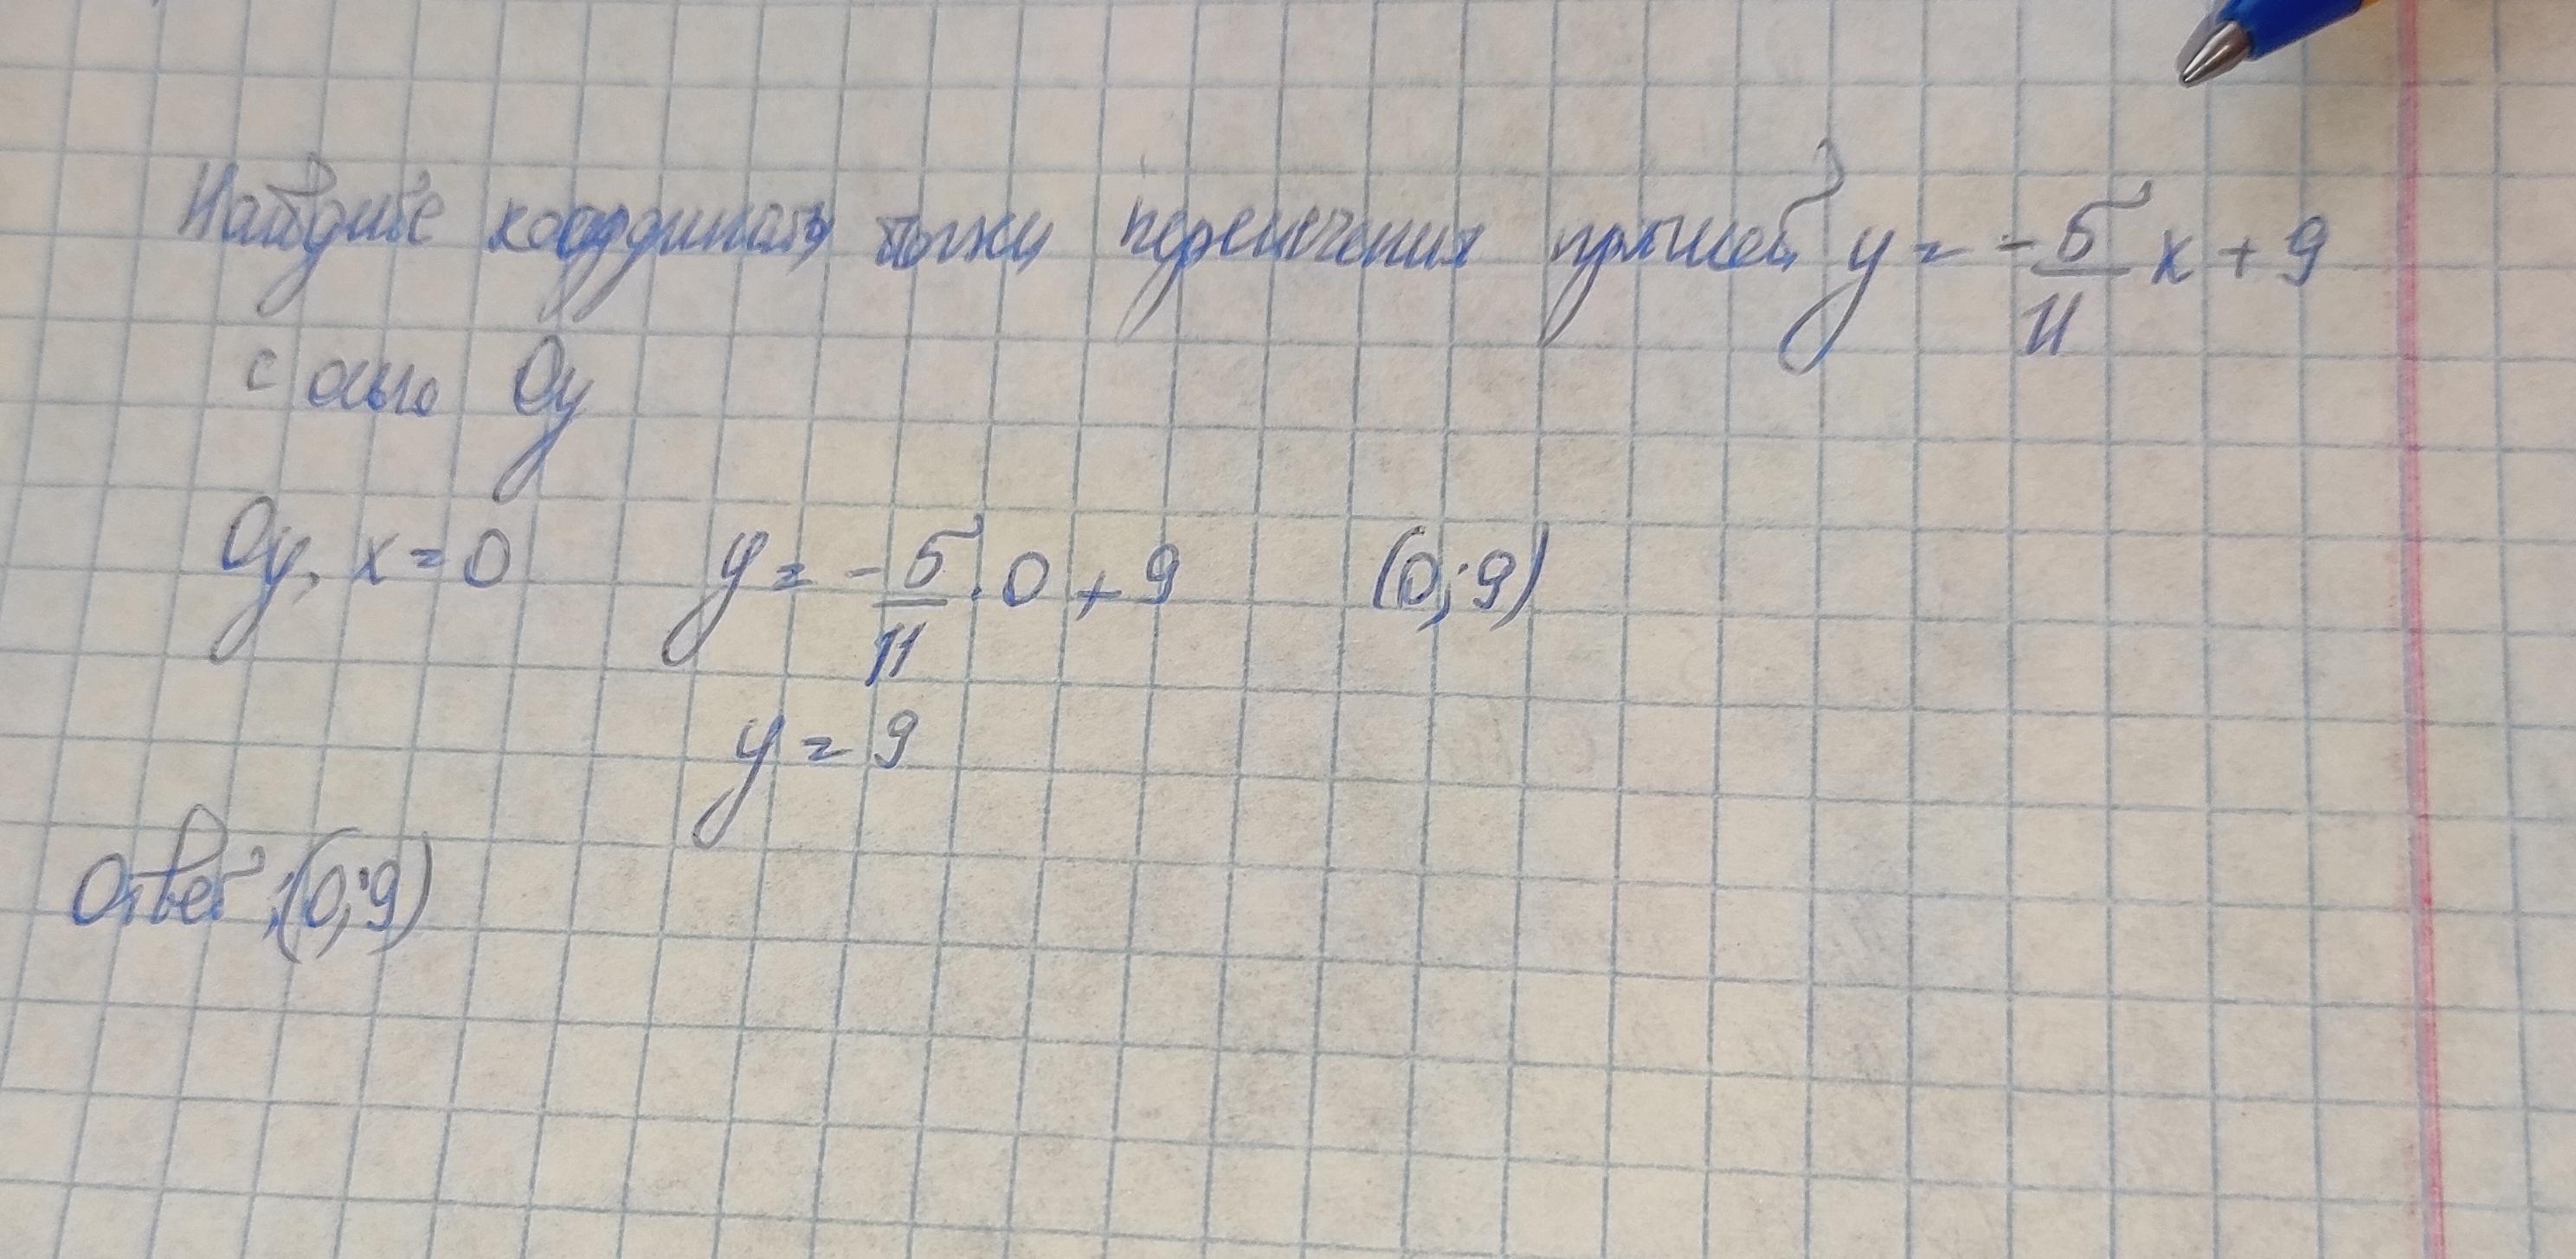 Найдите координаты точки пересечения прямой y = -5/11 x + 9
с осью Oy
Oy, x = 0 y = -5/11 · 0 + 9 (0; 9)
y = 9
Ответ: (0; 9)